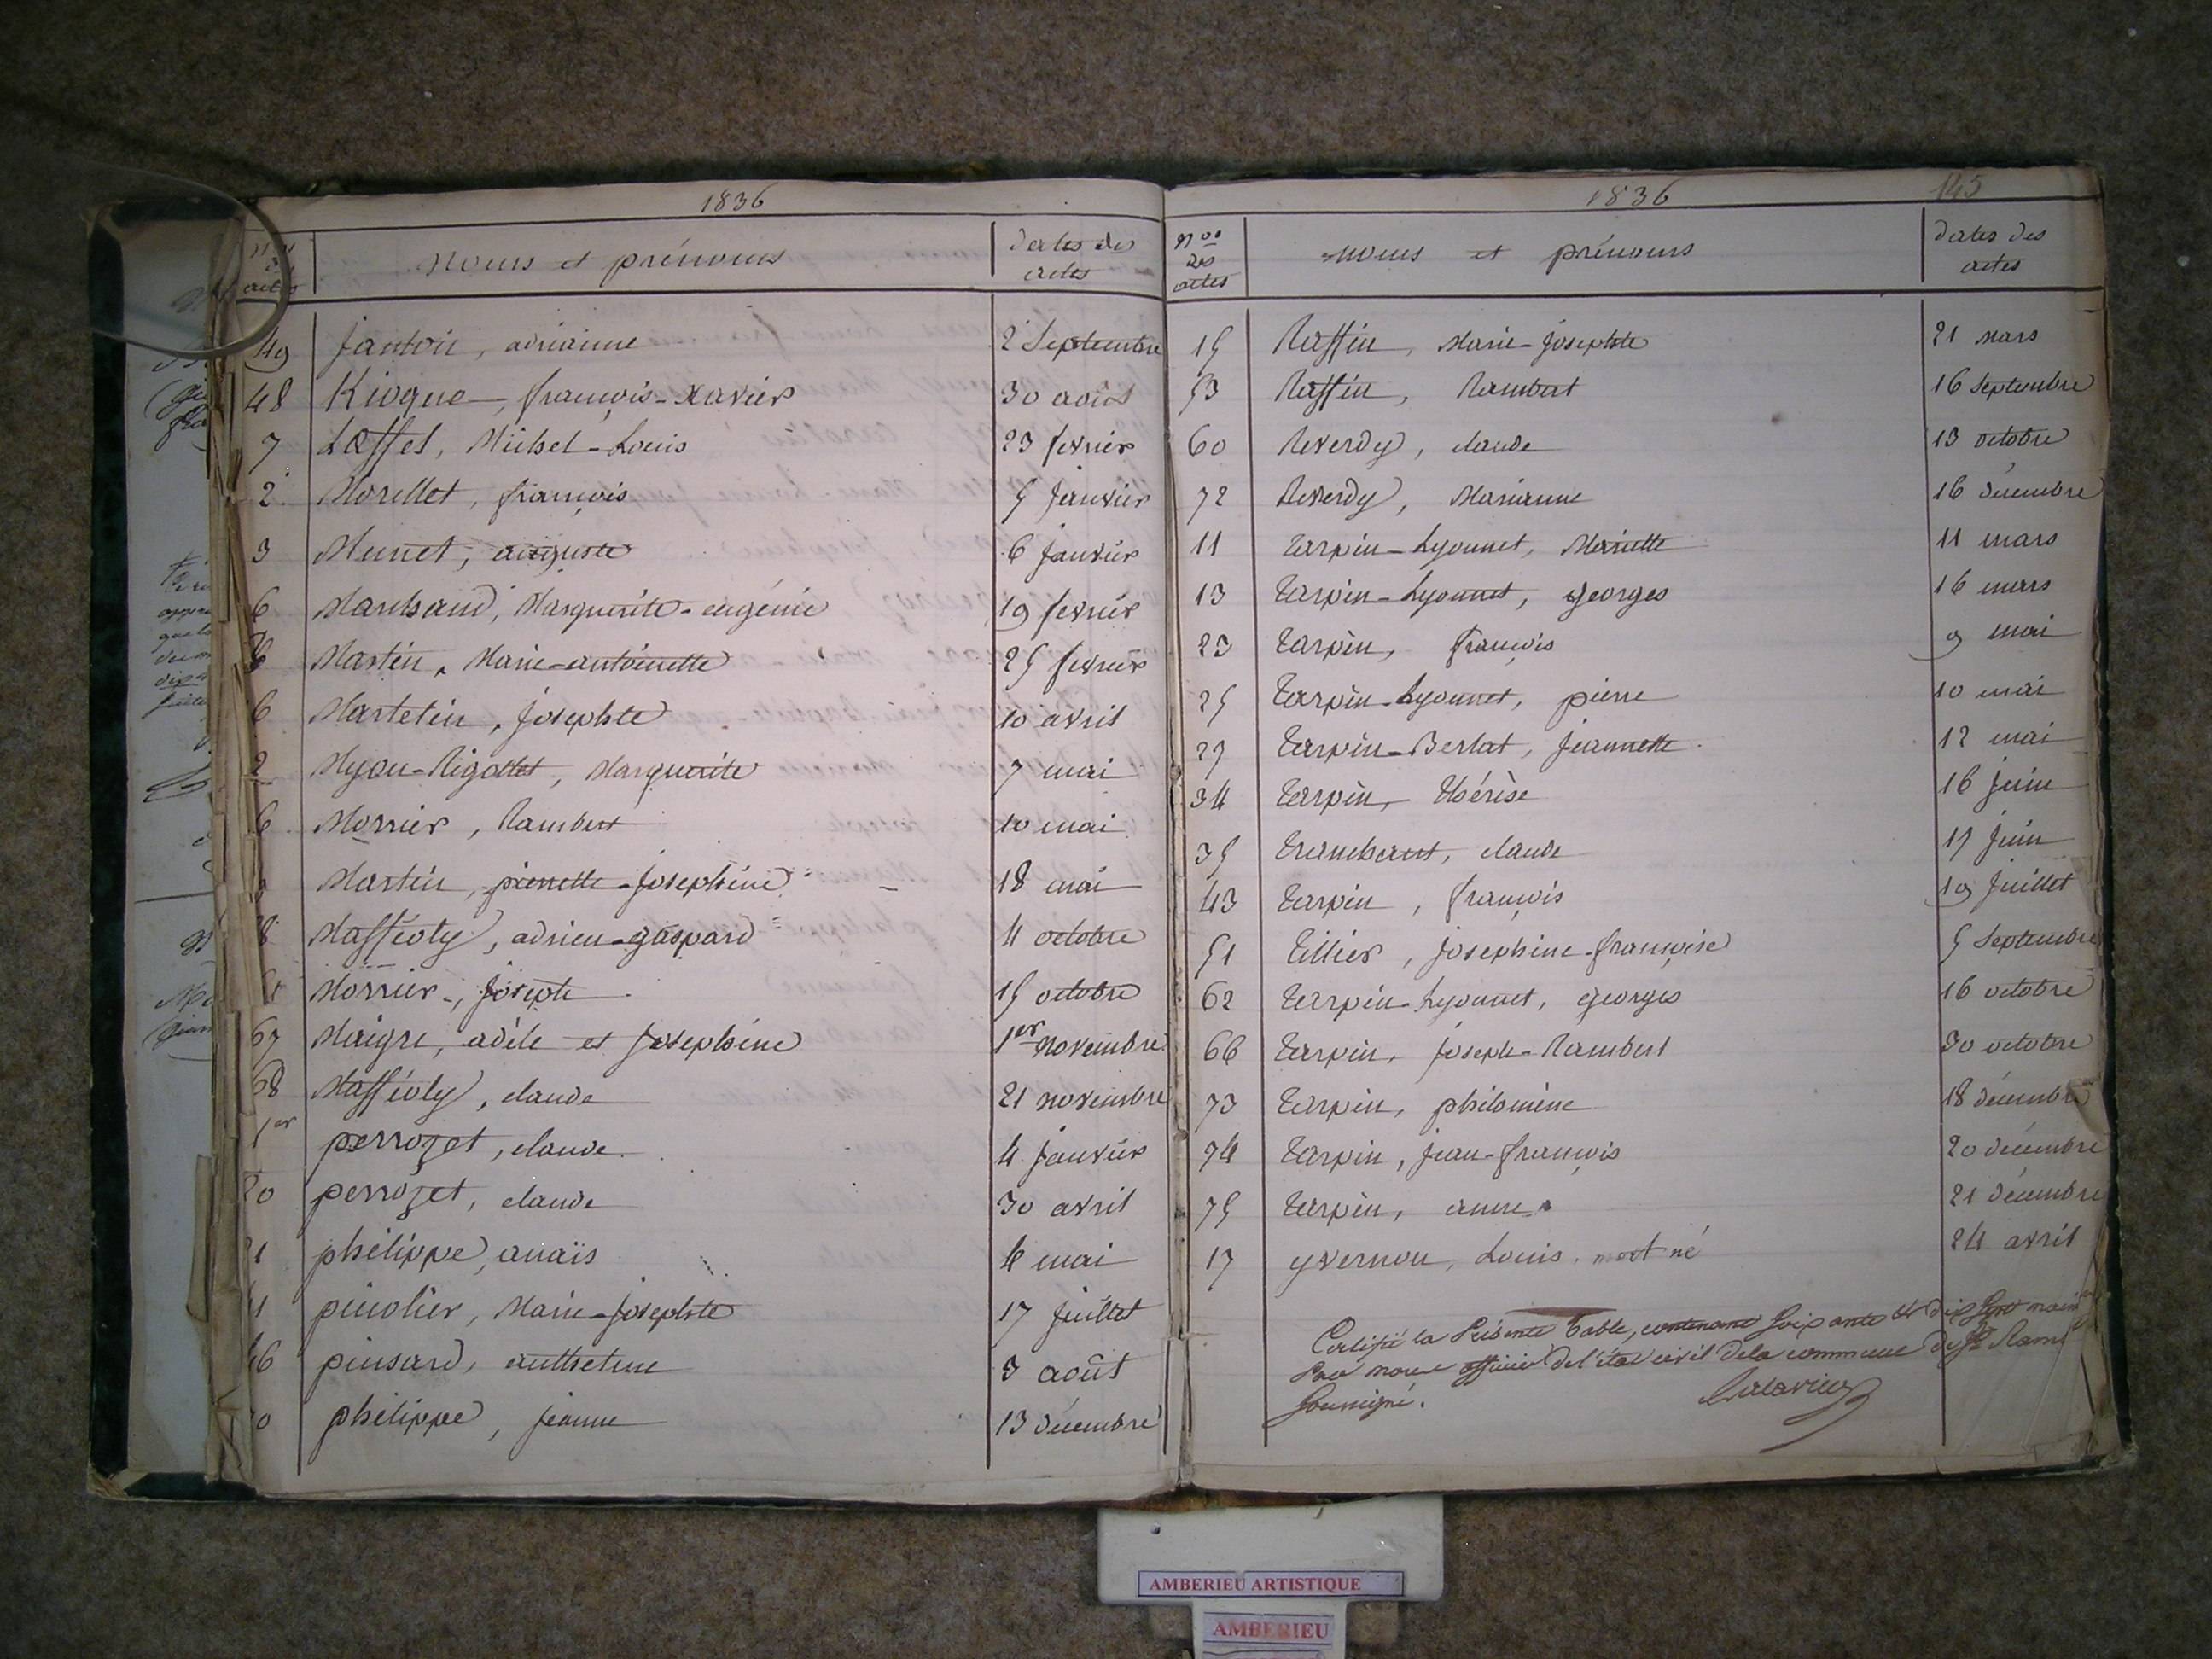 1836
Nos des actes
Noms et prénoms
Dates des actes
49 Jantoir, adriainne 2 Septembre
48 Kiogue, françois-xavier 30 août
7 Laffet, Michel-Louis 23 fevrier
2 Morellet, françois 5 Janvier
3 Meunet, auguste 6 Janvier
6 Marchand, Marguerite-eugénie 19 fevrier
Martin, Marie-antoinette 25 fevrier
6 Martelin, Josephte 10 avril
2 Myou-Rigollet, Marguerite 7 mai
6 Morrier, Rambert 10 mai
Martin, pierrette-Josephine 18 mai
8 Mafféoly, adrien-gaspard 4 octobre
Morrier, Joseph 15 octobre
67 Maigre, adèle et Josephine 1er novembre
68 Mafféoly, claude 21 novembre
1er perrozet, claude 4 Janvier
20 perrozet, claude 30 avril
21 philippe, anaïs 4 mai
41 pinolier, Marie-Josephte 17 Juillet
46 pinsard, anthelme 3 août
70 philippe, Jeanne 13 décembre
1836
145
Nos des actes
noms et prénoms
Dates des actes
15 Raffin, Marie-Josephte 21 mars
53 Raffin, Rambert 16 Septembre
60 Reverdy, claude 13 octobre
72 Reverdy, Marianne 16 décembre
11 Tarpin-Lyonnet, Mariette 11 mars
13 Tarpin-Lyonnet, georges 16 mars
23 Tarpin, françois 9 mai
25 Tarpin-Lyonnet, pierre 10 mai
27 Tarpin-Berlat, Jeannette 12 mai
34 Tarpin, Thérèse 16 Juin
35 Tranchant, claude 17 Juin
43 Tarpin, françois 19 Juillet
51 Tillier, Josephine-françoise 5 Septembre
62 Tarpin-Lyonnet, georges 16 octobre
66 Tarpin, Joseph-Rambert 30 octobre
73 Tarpin, philomène 18 décembre
74 Tarpin, Jean-françois 20 décembre
75 Tarpin, anne 21 décembre
17 yvernou, Louis. mort né 24 avril
Certifié la Présente Table, contenant Soixante et dix Sept
Par nous officier de l'état civil de la commune de St Ram
Soussigné.
AMBERIEU ARTISTIQUE
AMBERIEU